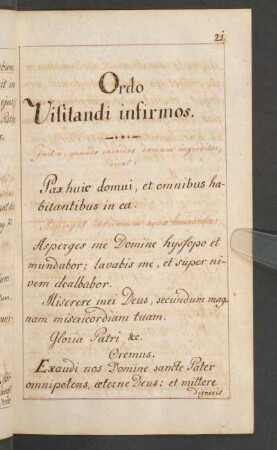 21
Ordo
Visitandi infirmos.
domum ingreditur,
dicat:
Pax huic domui, et omnibus ha-
bitantibus in ea.
Asperges me Domine hyssopo et
mundabor; lavabis me, et super ni-
vem dealbabor.
Miserere mei Deus, secundum mag-
nam misericordiam tuam.
Gloria Patri, &c.
Oremus.
Exaudi nos Domine sancte Pater
omnipotens, æterne Deus: et mittere
digneris